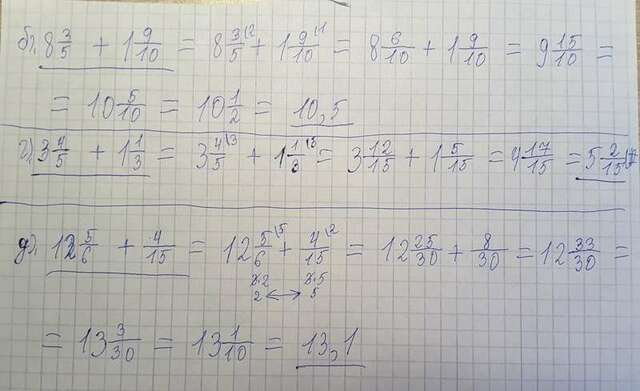 б). 8 3/5 + 1 9/10 = 8 3/5\2 + 1 9/10\1 = 8 6/10 + 1 9/10 = 9 15/10 =
= 10 5/10 = 10 1/2 = 10,5
г). 3 4/5 + 1 1/3 = 3 4/5\3 + 1 1/3\5 = 3 12/15 + 1 5/15 = 4 17/15 = 5 2/15
д). 12 5/6 + 4/15 = 12 5/6\5 + 4/15\2 = 12 25/30 + 8/30 = 12 33/30 =
3·2 3·5
2 ↔ 5
= 13 3/30 = 13 1/10 = 13,1